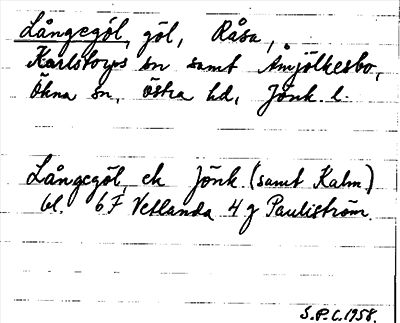 Långegöl, göl, Råsa,
Karlstorps sn samt Åmjölkesbo,
Ökna sn, östra hd, Jönk l.
Långegöl, ek Jönk (samt Kalm)
bl. 6F Vetlanda 4 g Pauliström.
S.P.C. 1958.